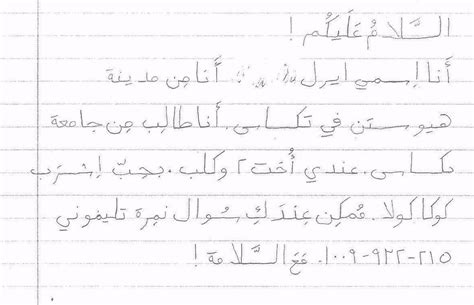 السَّلامُ عَلَيكُم !
أنا إسمي ايرل . أنا مِن مدينة
هيوستن في تكساس. أنا طالِب مِن جامعة
تكساس. عندي أُخت ٢ وكلب. بحِبّ اِشرَب
كوكا كولا. مُمكِن عِندَكِ سُوال نِمرة تليفوني
٢١٥-٩٢٢-١٠٠٩. مَعَ السَّلامة !